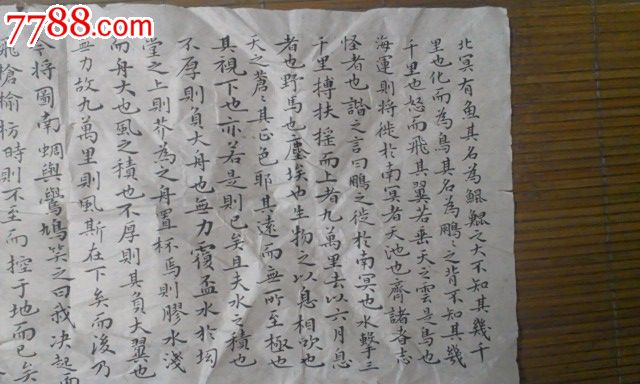 7788.com
北冥有魚其名為鯤鯤之大不知其幾千
里也化而為鳥其名為鵬々之背不知其幾
千里也怒而飛其翼若垂天之雲是鳥也
海運則将徙於南冥者天池也齊諸者志
怪者也諧之言曰鵬之徙於南冥也水擊三
千里摶扶摇而上者九萬里去以六月息
者也野馬也塵埃也生物之以息相吹也
天之蒼々其正色耶其遠而無所至極也
其視下也亦若是則已矣且夫水之積也
不厚則負大舟也無力覆盃水於坳
堂之上則芥為之舟置杯焉則膠水淺
而舟大也風之積也不厚則其負大翼也
無力故九萬里則風斯在下矣而後乃
今将圖南蜩與鷽鳩笑之曰我决起而
飛槍榆枋時則不至而控于地而已矣